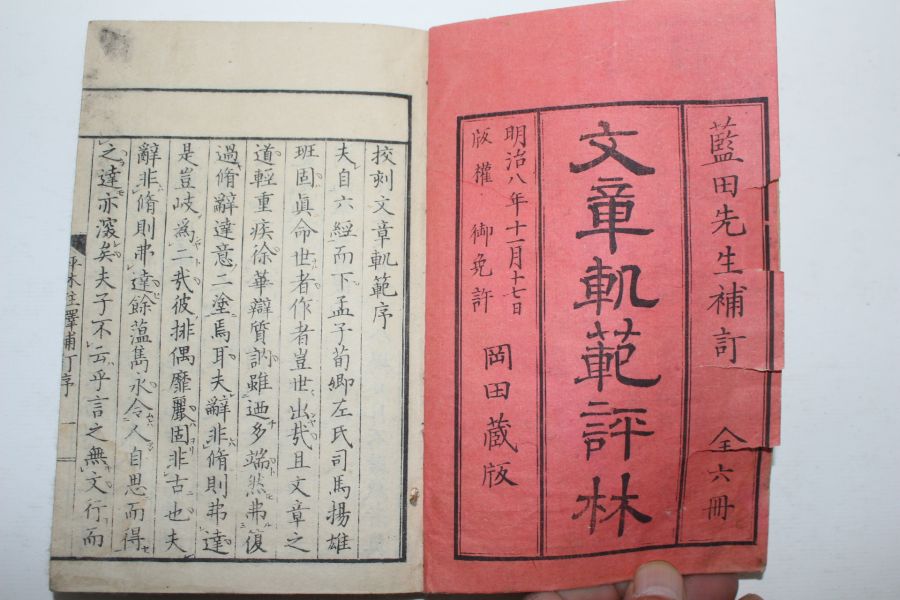 藍田先生補訂　全六冊
文章軌範評林
明治八年十一月十七日
版權　御免許
岡田蔵版
挍刻文章軌範序
夫自六經而下孟子荀卿左氏司馬揚雄
班固眞命世者作者豈世出哉且文章之
道輕重疾徐華辯質訥雖迺多端然弗復
過脩辭達意二塗焉耳夫辭非脩則弗達
是豈岐爲二哉彼排偶靡麗固非古也夫
辭非脩則弗達餘薀雋永令人自思而得
之達亦深矣夫子不云乎言之無文行而
評林註釋補訂序　一